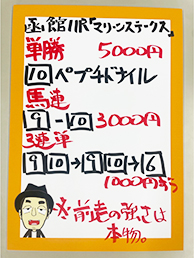 函館11R「マリーンステークス」
単勝 5000円
10 ペプチドナイル
馬連
9-10 3000円
3連単
9 10→9 10→6
1000円ずつ
※前走の強さは
本物。